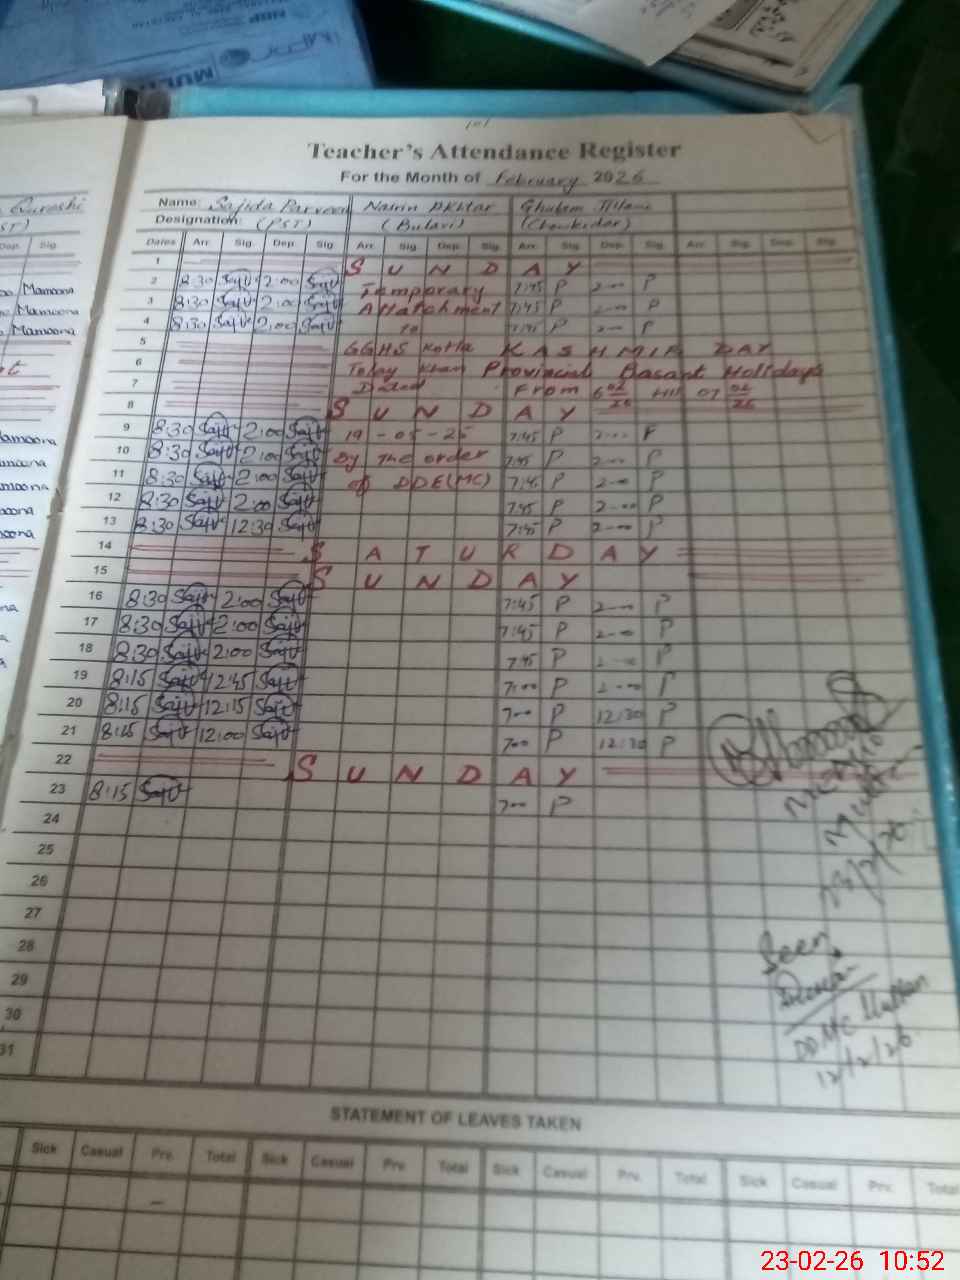 MULTI
101
Teacher's Attendance Register
For the Month of February 2026
Qureshi
Name: Sajida Parveen Nasrin Akhtar Ghulam Jillani
Designation: (PST) (Bulavi) (Chowkidar)
Dep. Sig.
Dates Arr. Sig. Dep. Sig. Arr. Sig. Dep. Sig. Arr. Sig. Dep. Sig. Arr. Sig. Dep. Sig.
1 SUNDAY
2 8:30 2:00 Temporary 7:45 P 2-00 P
3 8:30 2:00 Attatchment 7:45 P 2-00 P
4 8:30 2:00 to 7:45 P 2-00 P
5 GGHS Kotla KASHMIR DAY
6 Tolay Khan Provincial Basant Holidays
7 Dated From 6 02/26 till 07 02/26
8 SUNDAY
9 8:30 2:00 19-05-25 7:45 P 2-00 P
10 8:30 2:00 By the order 7:45 P 2-00 P
11 8:30 2:00 of DDE(MC) 7:45 P 2-00 P
12 8:30 2:00 7:45 P 2-00 P
13 8:30 12:30 7:45 P 2-00 P
14 SATURDAY
15 SUNDAY
16 8:30 2:00 7:45 P 2-00 P
17 8:30 2:00 7:45 P 2-00 P
18 8:30 2:00 7:45 P 2-00 P
19 8:15 12:45 7:00 P 2-00 P
20 8:15 12:15 700 P 12:30 P
21 8:15 12:00 700 P 12:30 P
22 SUNDAY
23 8:15 700 P
24
25
26
27
28
29
30
31
Mamoona
Mamoona
Mamoona
Seen
DDMC Multan
12/2/26
STATEMENT OF LEAVES TAKEN
Sick Casual Prv. Total Sick Casual Prv. Total Sick Casual Prv. Total Sick Casual Prv. Total
23-02-26 10:52